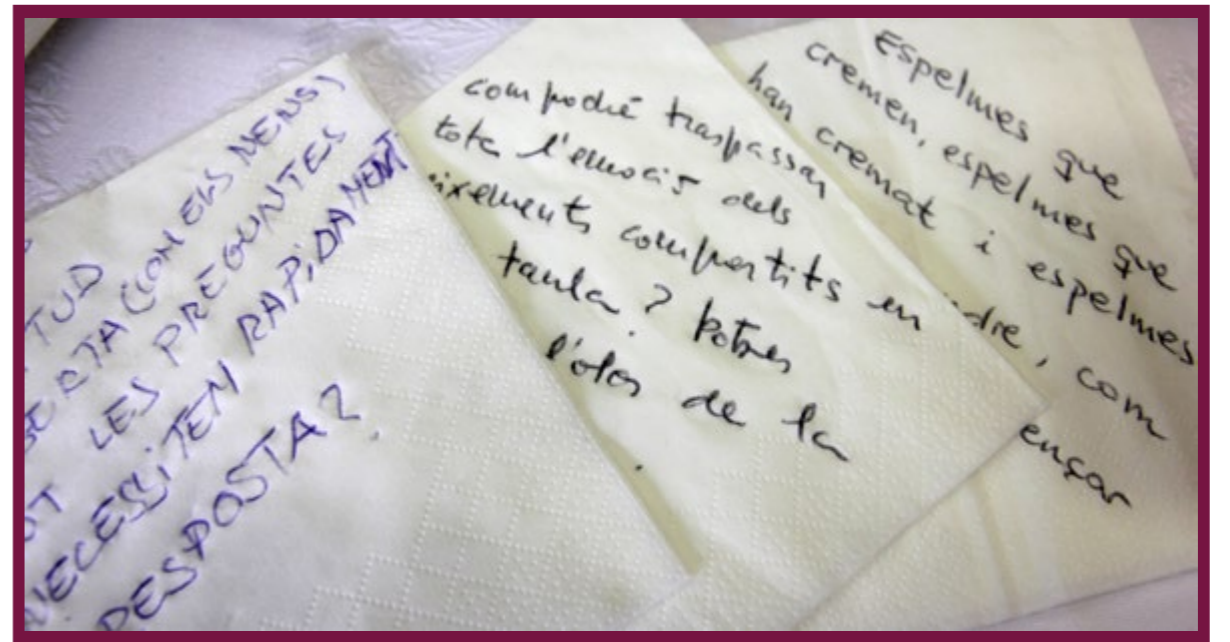 TUD
(COM ELS NENS)
LES PREGUNTES
NECESSITEN RAPIDAMENT
RESPOSTA?
com podré traspassar
tota l'emoció dels
eixements compartits en
taula? Potser
l'olor de la
Espelmes que
cremen, espelmes que
han cremat i espelmes
dre, com
ençar